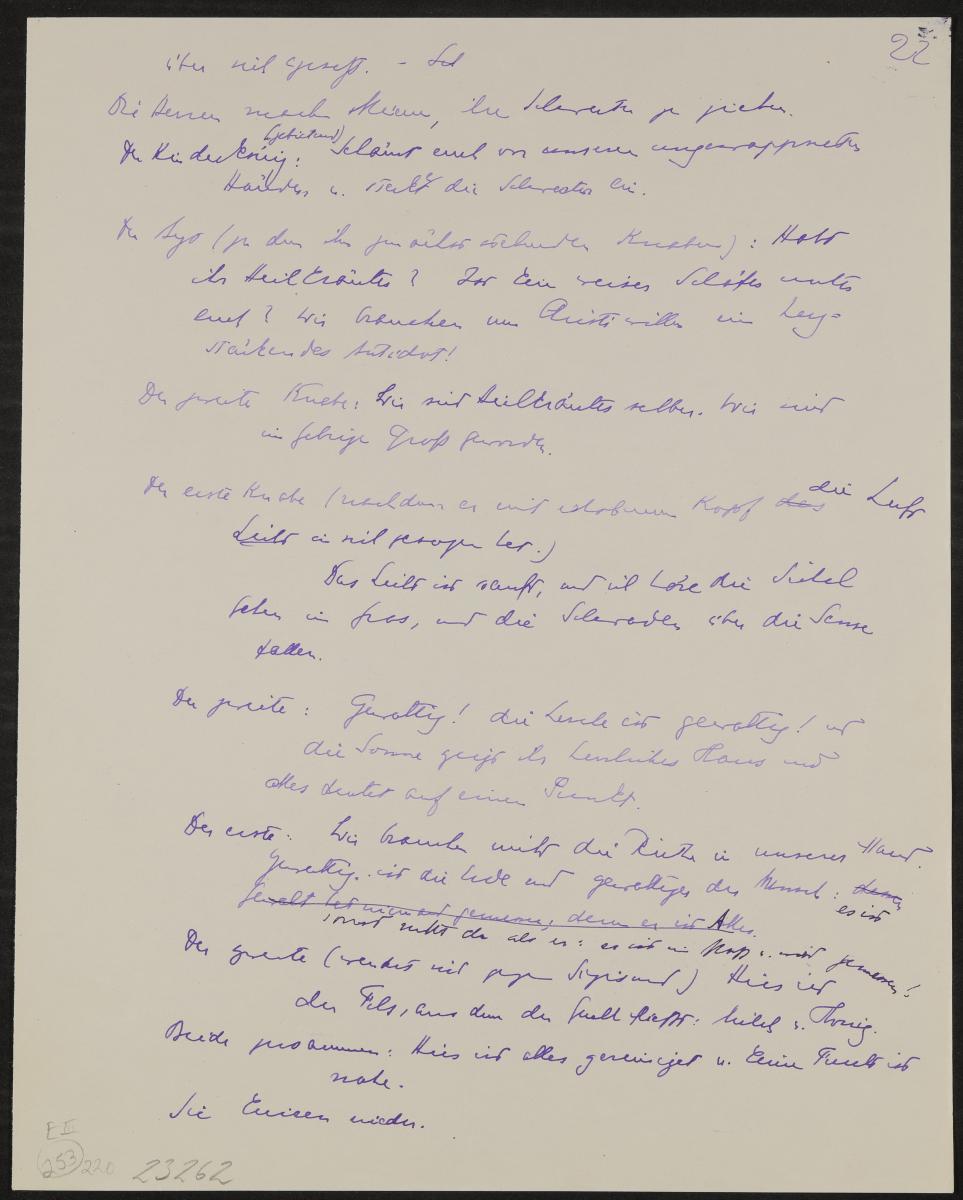 22
über sich gesetzt. – Sch
Die Herren machen Miene, ihre Schwerter zu ziehen.
Der Kinderkönig: (gebietend) Schämt euch vor unseren ungewappneten
Händen u. steckt die Schwerter ein.
Der Arzt (zu den ihm zunächst stehenden Knaben): Habt
ihr Heilkräuter? Ist kein weiser Schäfer unter
euch? Wir brauchen um Christi willen ein herz-
stärkendes Antidot!
Der zweite Knabe: Wir sind Heilkräuter selber. Wir sind
im Gebirge groß geworden.
Der erste Knabe (nachdem er mit erhobenem Kopf das die Luft
Licht in sich gezogen hat.)
Das Licht ist sanft, und ich höre die Sichel
gehen im Gras, und die Schwaden über die Sense
fallen.
Der zweite: Gewaltig! die Lerche ist gewaltig! und
die Sonne zeigt ihr herrliches Haus und
alles deutet auf einen Punkt.
Der erste: Wir brauchen nicht die Rute in unserer Hand.
Gewaltig ist die Erde und gewaltiger der Mensch: denn
Gewalt hat niemand gemessen, denn er ist Alles. es ist
sonst nichts da als er: es ist ein Maß u. wird gemessen!
Der zweite (wendet sich gegen Sigismund) Hier ist
der Fels, aus dem der Quell fließt: Milch u. Honig.
Beide zusammen: Hier ist alles gereinigt u. keine Furcht ist
nahe.
Sie knieen nieder.
E III
253 220 23262